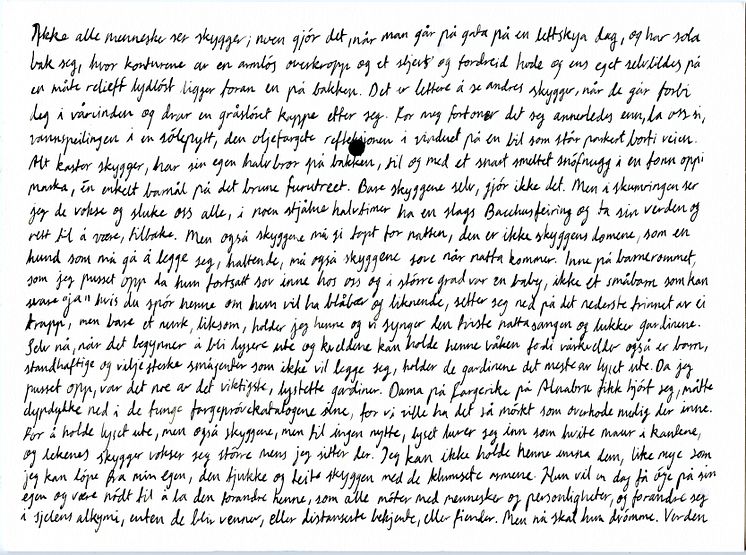 Ikke alle menneske ser skygger; noen gjør det, når man går på gata på en lettskya dag, og har sola
bak seg, hvor konturene av en armløs overkropp og et skjevt og fordreid hode og ens eget selvbildes på
en måte relieff lydløst ligger foran en på bakken. Det er lettere å se andres skygger, når de går forbi
deg i vårvinden og drar en gråsløret kappe etter seg. For meg fortoner det seg annerledes enn, la oss si,
vannspeilingen i en sølepytt, den oljefargete refleksjonen i vinduet på en bil som står parkert borti veien.
Alt kastor skygger, har sin egen halvbror på bakken, til og med et snart smeltet snøfnugg i en fonn oppi
marka, én enkelt barnål på det brune furutreet. Bare skyggene selv, gjør ikke det. Men i skumringen ser
jeg de vokse og sluke oss alle, i noen stjålne halvtimer ha en slags Bacchusfeiring og ta sin verden og
rett til å være, tilbake. Men også skyggene må gi tapt for natten, den er ikke skyggens domene, som en
hund som må gå å legge seg, haltende, må også skyggene sove når natta kommer. Inne på barnerommet,
som jeg pusset opp da hun fortsatt sov inne hos oss og i større grad var en baby, ikke et småbarn som kan
svare "ja" hvis du spør henne om hun vil ha blåbær og liknende, setter seg ned på det nederste trinnet av ei
trapp, men bare et nurk, liksom, holder jeg henne og vi synger den triste nattasangen og lukker gardinene.
Selv nå, når det begynner å bli lysere ute og kveldene kan holde henne våken fordi vårkvelder også er barn,
standhaftige og viljesterke småjenter som ikke vil legge seg, holder de gardinene det meste av lyset ute. Da jeg
pusset opp, var det noe av det viktigste, lystette gardiner. Dama på Fargerike på Alnabru fikk bjørt seg, måtte
dypdykke ned i de tunge fargeprøvekatalogene sine, for vi ville ha det så mørkt som overhode mulig der inne.
For å holde lyset ute, men også skyggene, men til ingen nytte, lyset lurer seg inn som hvite maur i kantene,
og lekenes skygger vokser seg større mens jeg sitter der. Jeg kan ikke holde henne unna dem, like mye som
jeg kan løpe fra min egen, den tjukke og teite skyggen med de klumsete armene. Hun vil en dag få øye på sin
egen og være nødt til å la den forandre henne, som alle møter med mennesker og personligheter, og forandre seg
i sjelens alkymi, enten de blir venner, eller distanserte bekjente, eller fiender. Men nå skal hun drømme. Verden